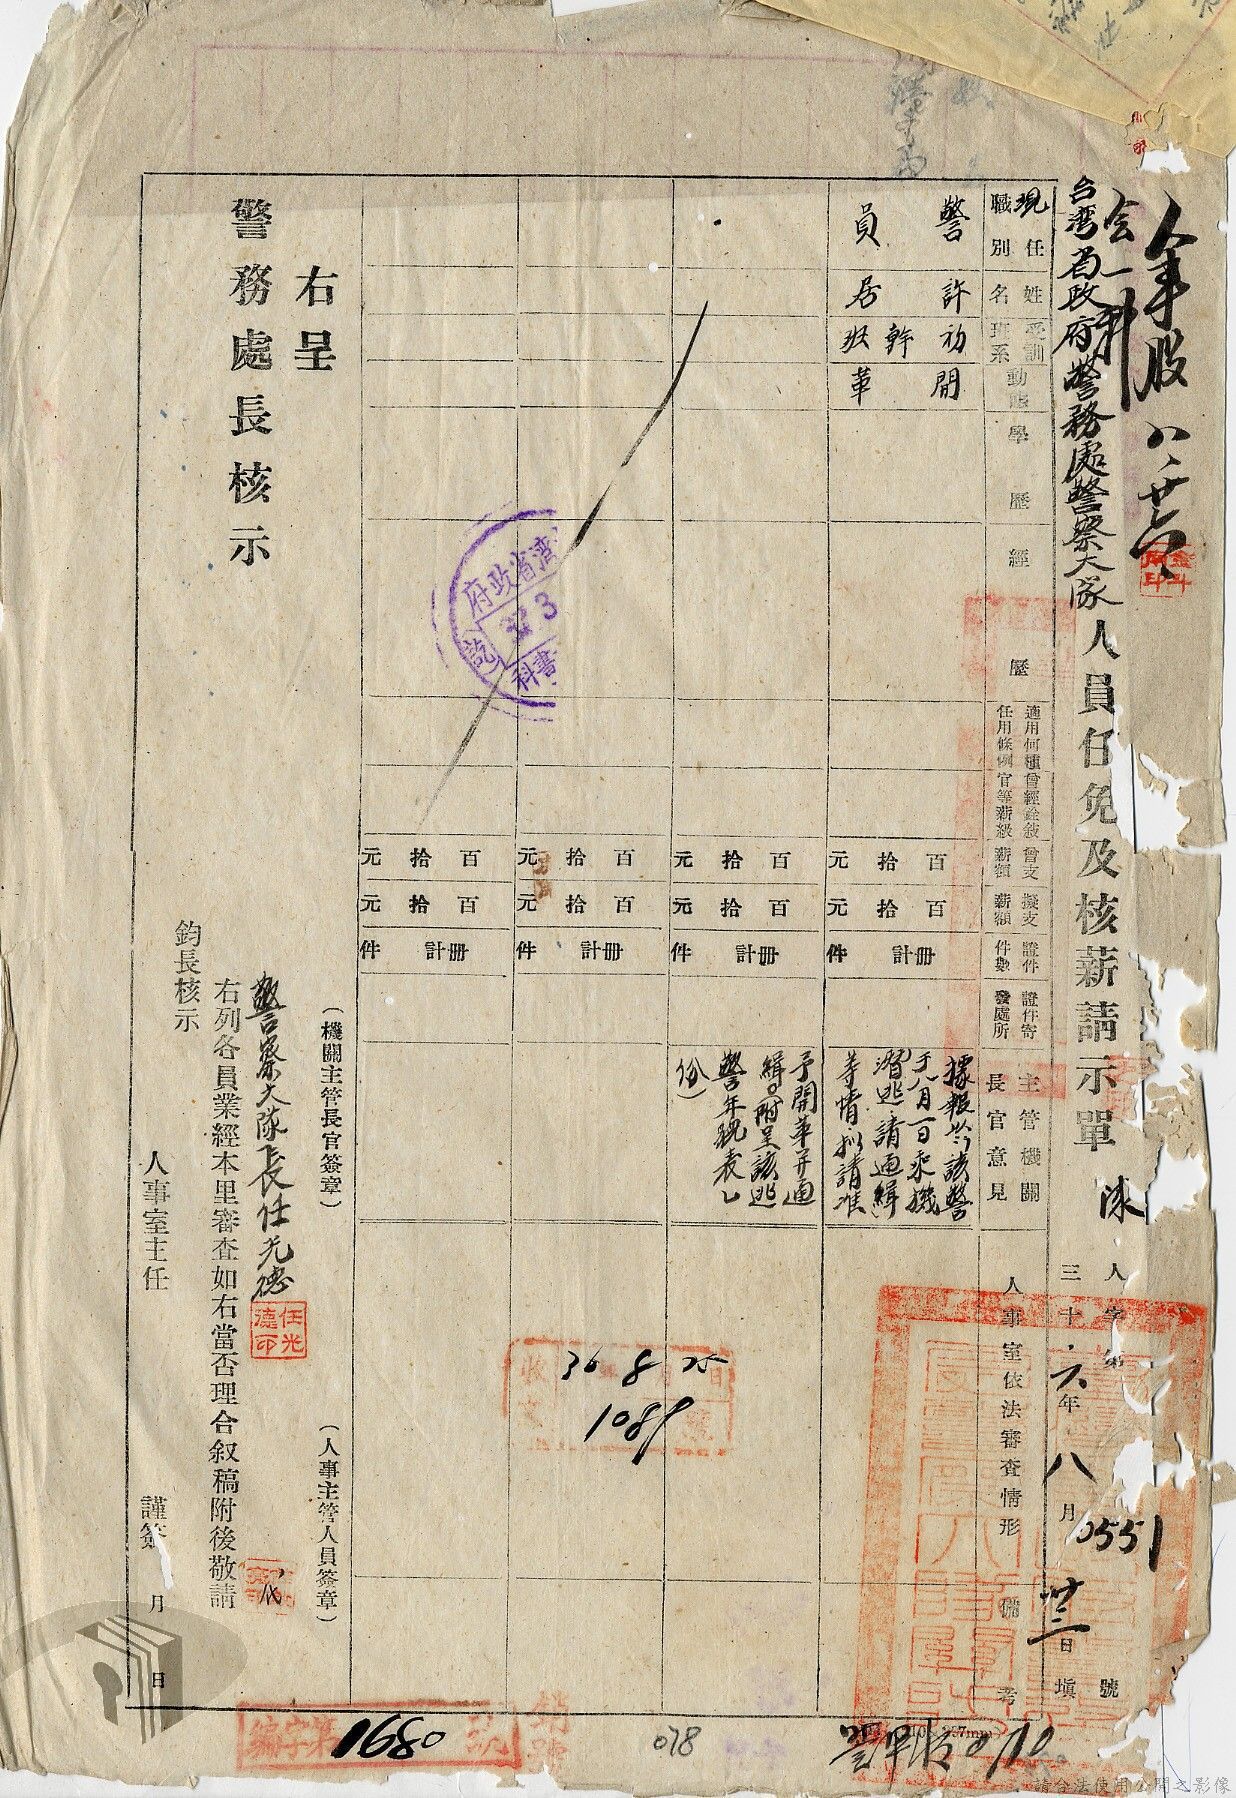 人事股
会一科
台湾省政府警務處警察大隊人員任免及核薪請示單
人字第0551號
三十六年八月廿三日填
現任職別
姓名
受訓班系
動態
學歷
經歷
適用何種任用條例
曾經銓敍官等薪級
曾支薪額
擬支薪額
證件件數
證件寄發處所
主管機關長官意見
人事室依法審查情形
備考
警員
許居
初幹班
開革
百拾元
百拾元
冊計件
據報以該警
于八月一日乘機
潛逃請通緝
等情拟請准
予開革并通
緝。(附呈該逃
警年貌表乙
份)
百拾元
百拾元
冊計件
百拾元
百拾元
冊計件
百拾元
百拾元
冊計件
湾省政府
36 8 25
1089
右呈
警務處長核示
(機關主管長官簽章)
警察大隊長任光德
任光德印
(人事主管人員簽章)
右列各員業經本里審查如右當否理合叙稿附後敬請
鈞長核示
人事室主任
謹簽
月 日
編字第1680號
078
請合法使用公開之影像